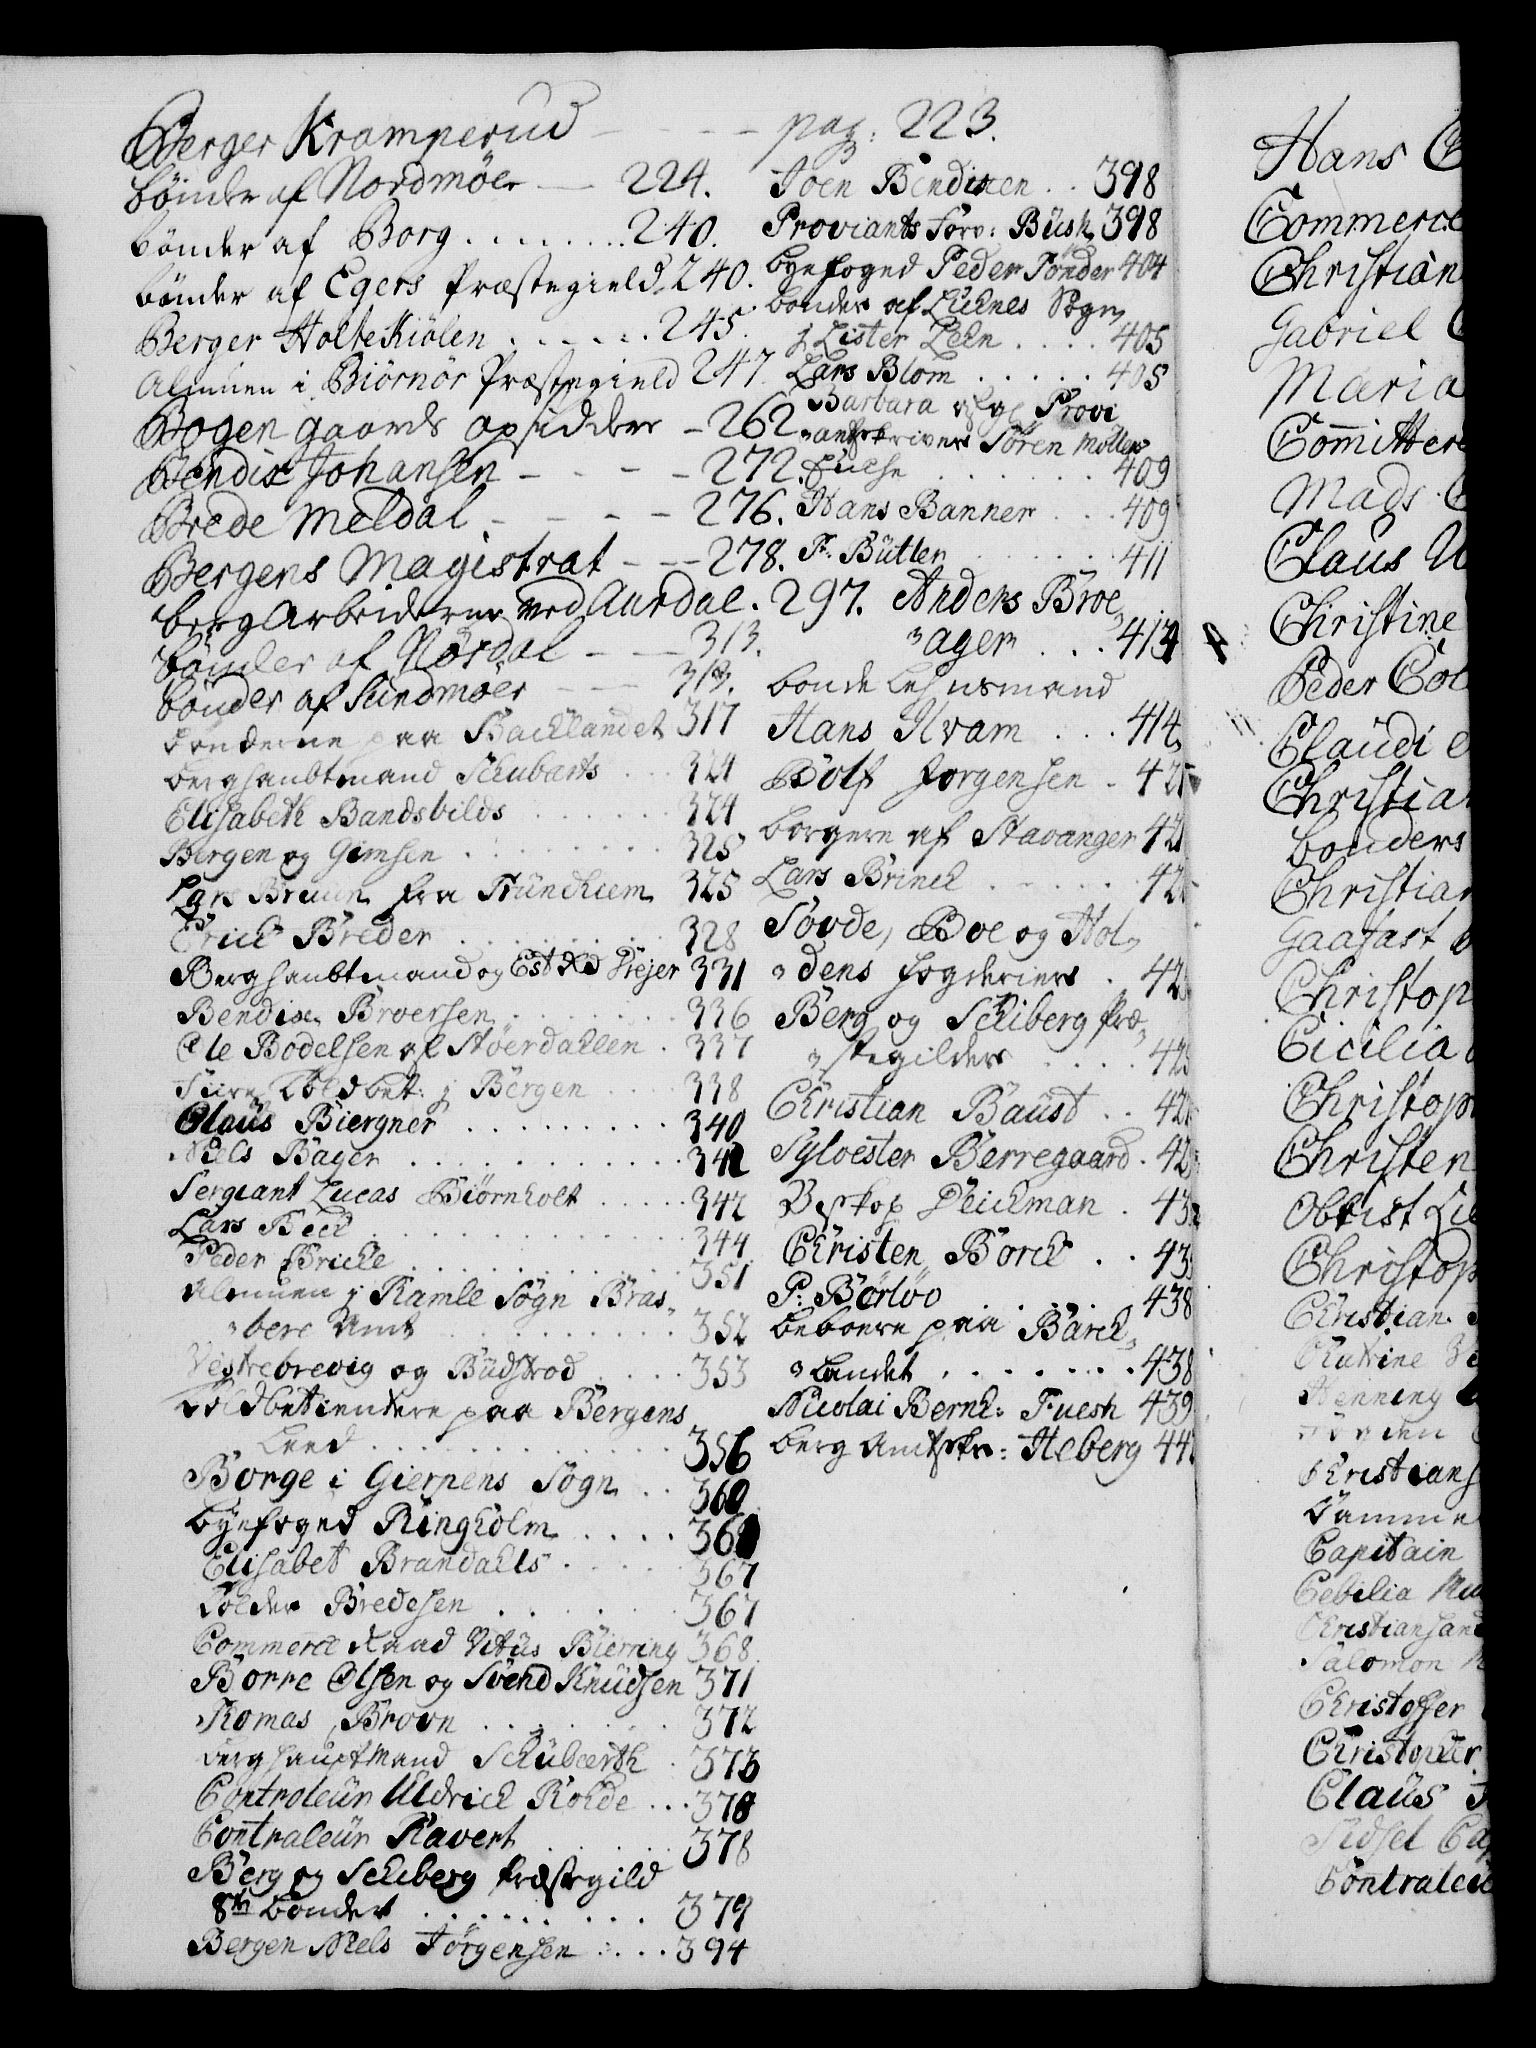 Berger Kramperud - - - - pag: 223.
bönder af Nordmöer — 224.
bönder af Borg ........ 240.
bönder af Egers Præstegield 240.
Berger Holtekiölen ...... 245
Almuen i Biörnör Præstegield 247
Bogen gaards opsiddere - 262
Bendix Johansen - - - - 272.
Brede Meldal - - - - 276.
Bergens Magistrat - - - 278.
bergarbeiderne ved Aardal. 297.
bönder af Nordal - - - 313.
bönder af Sundmöer - - - 313.
bönderne paa Backlandet 317
berghaubtmand Schubarts ... 324
Elisabeth Bandsbilds ...... 324
Bergen og Gimsen ........ 325
Lars Bruun fra Trundhiem 325
Erich Breder ......... 328
Berghaubtmand og Est Rd Dreyer 331
Bendix Broersen ....... 336
Ole Bodelsen af Støerdahlen . 337
Told bet: i Bergen ... 338
Claus Biergner ......... 340
Niels Bager ........... 342
Sergiant Lucas Biørnholt ..... 342
Lars Beck ............. 344
Peder Bricke ............ 351
Almuen i Ramle Sogn Bras„
„berg Amt .......... 352
Vestrebrevig og Budstrod .... 353
Toldbetientere paa Bergens
Leed ............. 356
Borge i Gierpens Sogn .. 360
byefoged Ringholm ..... 360
Elisabet Brandahls ..... 367
Bredesen ...... 367
Commerce Raad Vitus Bierring 368
Börre Olsen og Svend Knudsen 371
Thomas Brovn ....... 372
berghauptmand Schubarth . 373
Controleur Uldrich Rohde ... 378
Contraleur Ravert ...... 378
Berg og Schiberg Præstegild
bonder ......... 379
Bergen Niels Jörgensen .... 394
Joen Bendixen .. 398
Proviants Forv: Busk 398
byefoged Peder Tönder 404
bonder af Lidknes Sogn
i Lister Lehn .... 405
Lars Blom ...... 405
Barbara afg: Provi
„antskriver Sören Mollers
......... 409
Hans Banner ... 409
P. Bütler ....... 411
Anders Broe„
„ager ... 413
bonde Lehnsmand
Hans Kvam ... 414
Rolf Jorgensen . 42
borgere af Stavanger 42
Lars Brinck ...... 42
Sövde, Boe og Hol„
„dens fogderier . 42
Berg og Schiberg Præ„
„stegilder .... 42
Christian Baust .. 42
Sylvester Berregaard . 42
Biskop Deichman . 43
Christen Borch .. 43
P: Börlöv ..... 438
beboere paa Barck„
„landet ....... 438
Nicolai Bernh: Fuesh 439
berg Amtskr: Heberg 44
Hans
Commerce
Christian
Gabriel
Maria
Committere
Mads
Claus
Christine
Peder Col
Claudi
Christian
bonders
Christian
Christop
Cicilia
Christop
Christen
Obrist
Christop
Christian
Katrine
Henning
Christians
Capitain
Cebilia
Christiansand
Salomon
Christoffer
Christopher
Claus
Sidsel
Contraleu